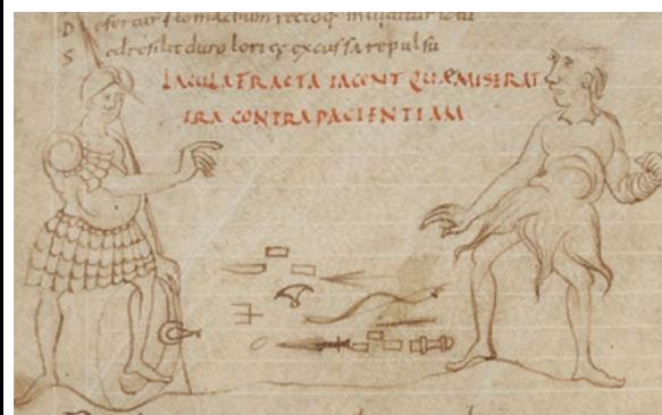 D efertur stomachum rectoq; inliditur ictu
S ed resilit duro loricę excussa repulsu
IACULA FRACTA IACENT QUÆ MISERAT
IRA CONTRA PACIENTIAM